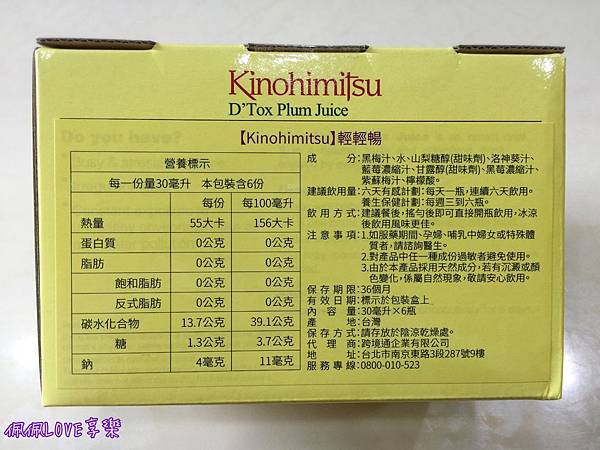 Kinohimitsu
D'Tox Plum Juice
【Kinohimitsu】輕輕暢
營養標示
每一份量30毫升 本包裝含6份
每份 每100毫升
熱量 55大卡 156大卡
蛋白質 0公克 0公克
脂肪 0公克 0公克
飽和脂肪 0公克 0公克
反式脂肪 0公克 0公克
碳水化合物 13.7公克 39.1公克
糖 1.3公克 3.7公克
鈉 4毫克 11毫克
成分:黑梅汁、水、山梨糖醇(甜味劑)、洛神葵汁、
藍莓濃縮汁、甘露醇(甜味劑)、黑莓濃縮汁、
紫蘇梅汁、檸檬酸。
建議飲用量:六天有感計劃:每天一瓶,連續六天飲用。
養生保健計劃:每週三到六瓶。
飲用方式:建議餐後,搖勻後即可直接開瓶飲用,冰涼
後飲用風味更佳。
注意事項:1.如服藥期間、孕婦、哺乳中婦女或特殊體
質者,請諮詢醫生。
2.對產品中任一種成份過敏者避免使用。
3.由於本產品採用天然成分,若有沉澱或顏
色變化,係屬自然現象,敬請安心飲用。
保存期限:36個月
有效日期:標示於包裝盒上
內容量:30毫升×6瓶
產地:台灣
保存方式:請存放於陰涼乾燥處。
代理商:跨境通企業有限公司
地址:台北市南京東路3段287號9樓
服務專線:0800-010-523
佩佩LOVE享樂